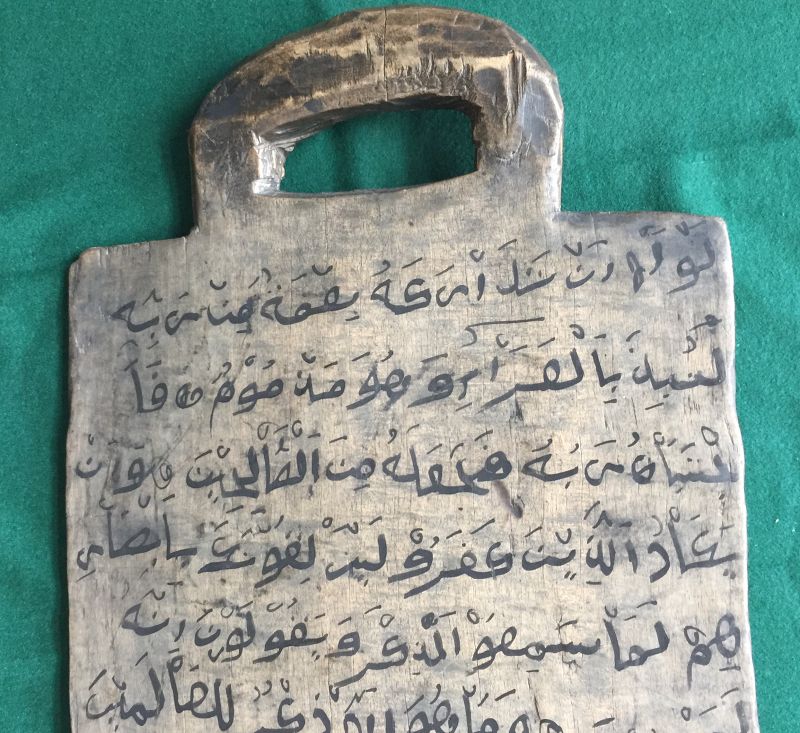 لَوْلَا أَنْ تَدَارَكَهُ نِعْمَةٌ مِنْ رَبِّهِ
لَنُبِذَ بِالْعَرَاءِ وَهُوَ مَذْمُومٌ فَا
جْتَبَاهُ رَبُّهُ فَجَعَلَهُ مِنَ الصَّالِحِينَ وَإِنْ
يَكَادُ الَّذِينَ كَفَرُوا لَيُزْلِقُونَكَ بِأَبْصَارِ
هِمْ لَمَّا سَمِعُوا الذِّكْرَ وَيَقُولُونَ إِنَّهُ
وَمَا هُوَ إِلَّا ذِكْرٌ لِلْعَالَمِينَ